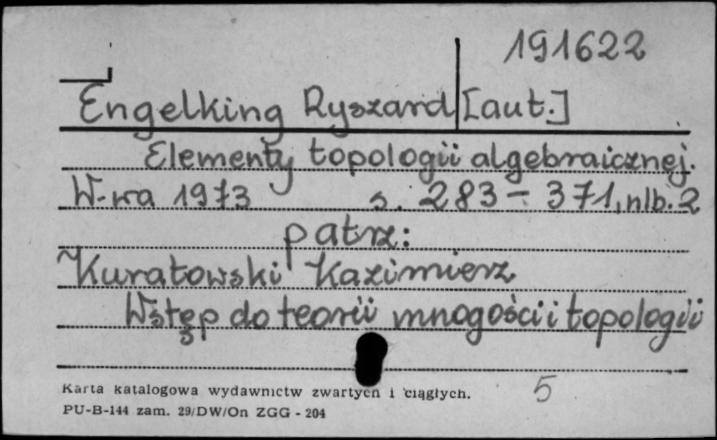 191622
Engelking Ryszard [aut.]
Elementy topologii algebraicznej.
W-wa 1973 s. 283-371, nlb. 2
patrz:
Kuratowski Kazimierz
Wstęp do teorii mnogości i topologii
5
Karta katalogowa wydawnictw zwartych i ciągłych.
PU-B-144 zam. 29/DW/On ZGG - 204